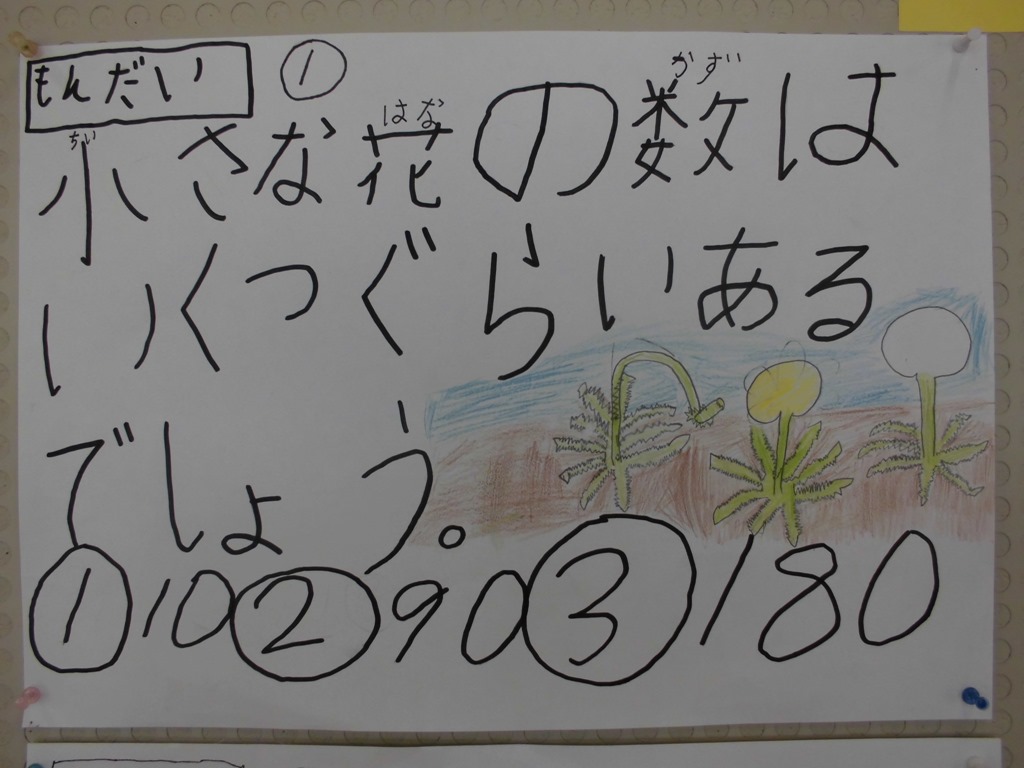 もんだい ①
小さな花の数は
いくつぐらいある
でしょう。
①10②90③180